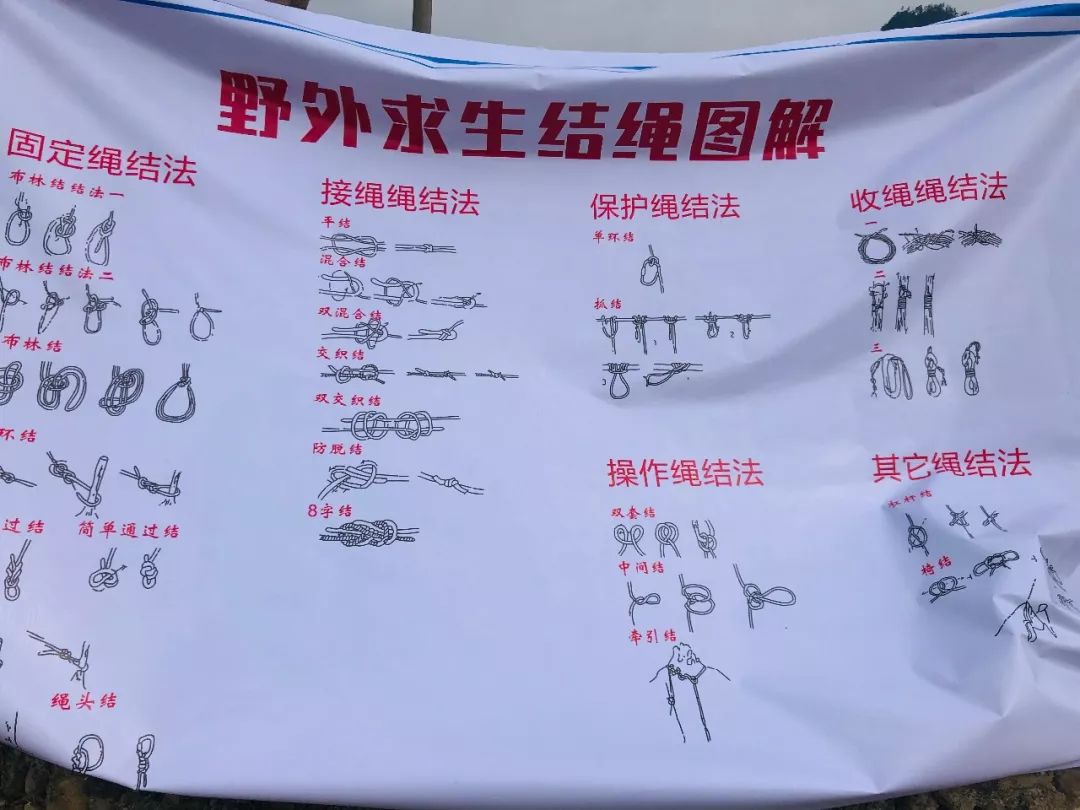 野外求生结绳图解
固定绳结法
布林结结法一
布林结结法二
布林结
环结
过结 简单通过结
绳头结
接绳绳结法
平结
混合结
双混合结
交织结
双交织结
防脱结
8字结
保护绳结法
单环结
抓结
1
2
3
操作绳结法
双套结
中间结
牵引结
收绳绳结法
一
二
三
其它绳结法
杠杆结
椅结